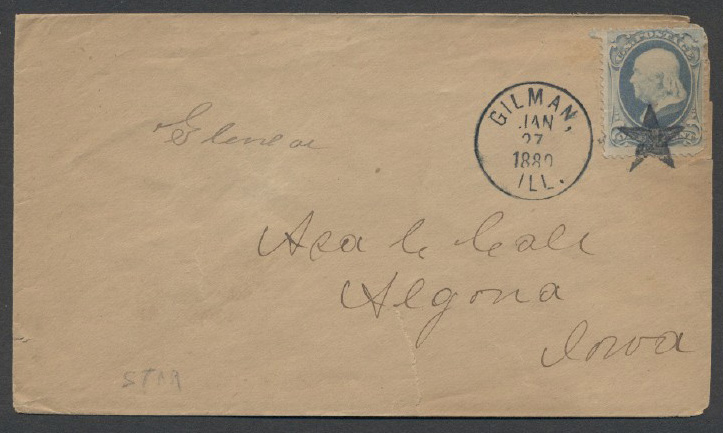 U.S. POSTAGE
GILMAN,
JAN
27
1880
ILL.
Asa C. Call
Algona
Iowa
STAR